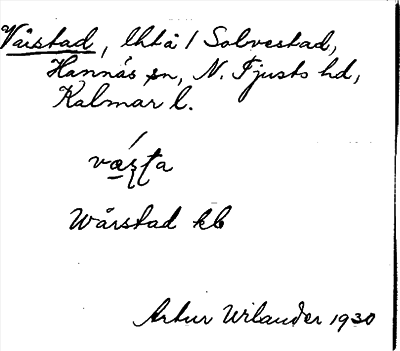 Vårstad, lhtå i Solvestad,
Hannäs sn, N. Tjusts hd,
Kalmar l.
Wårstad kb
Artur Wilander 1930